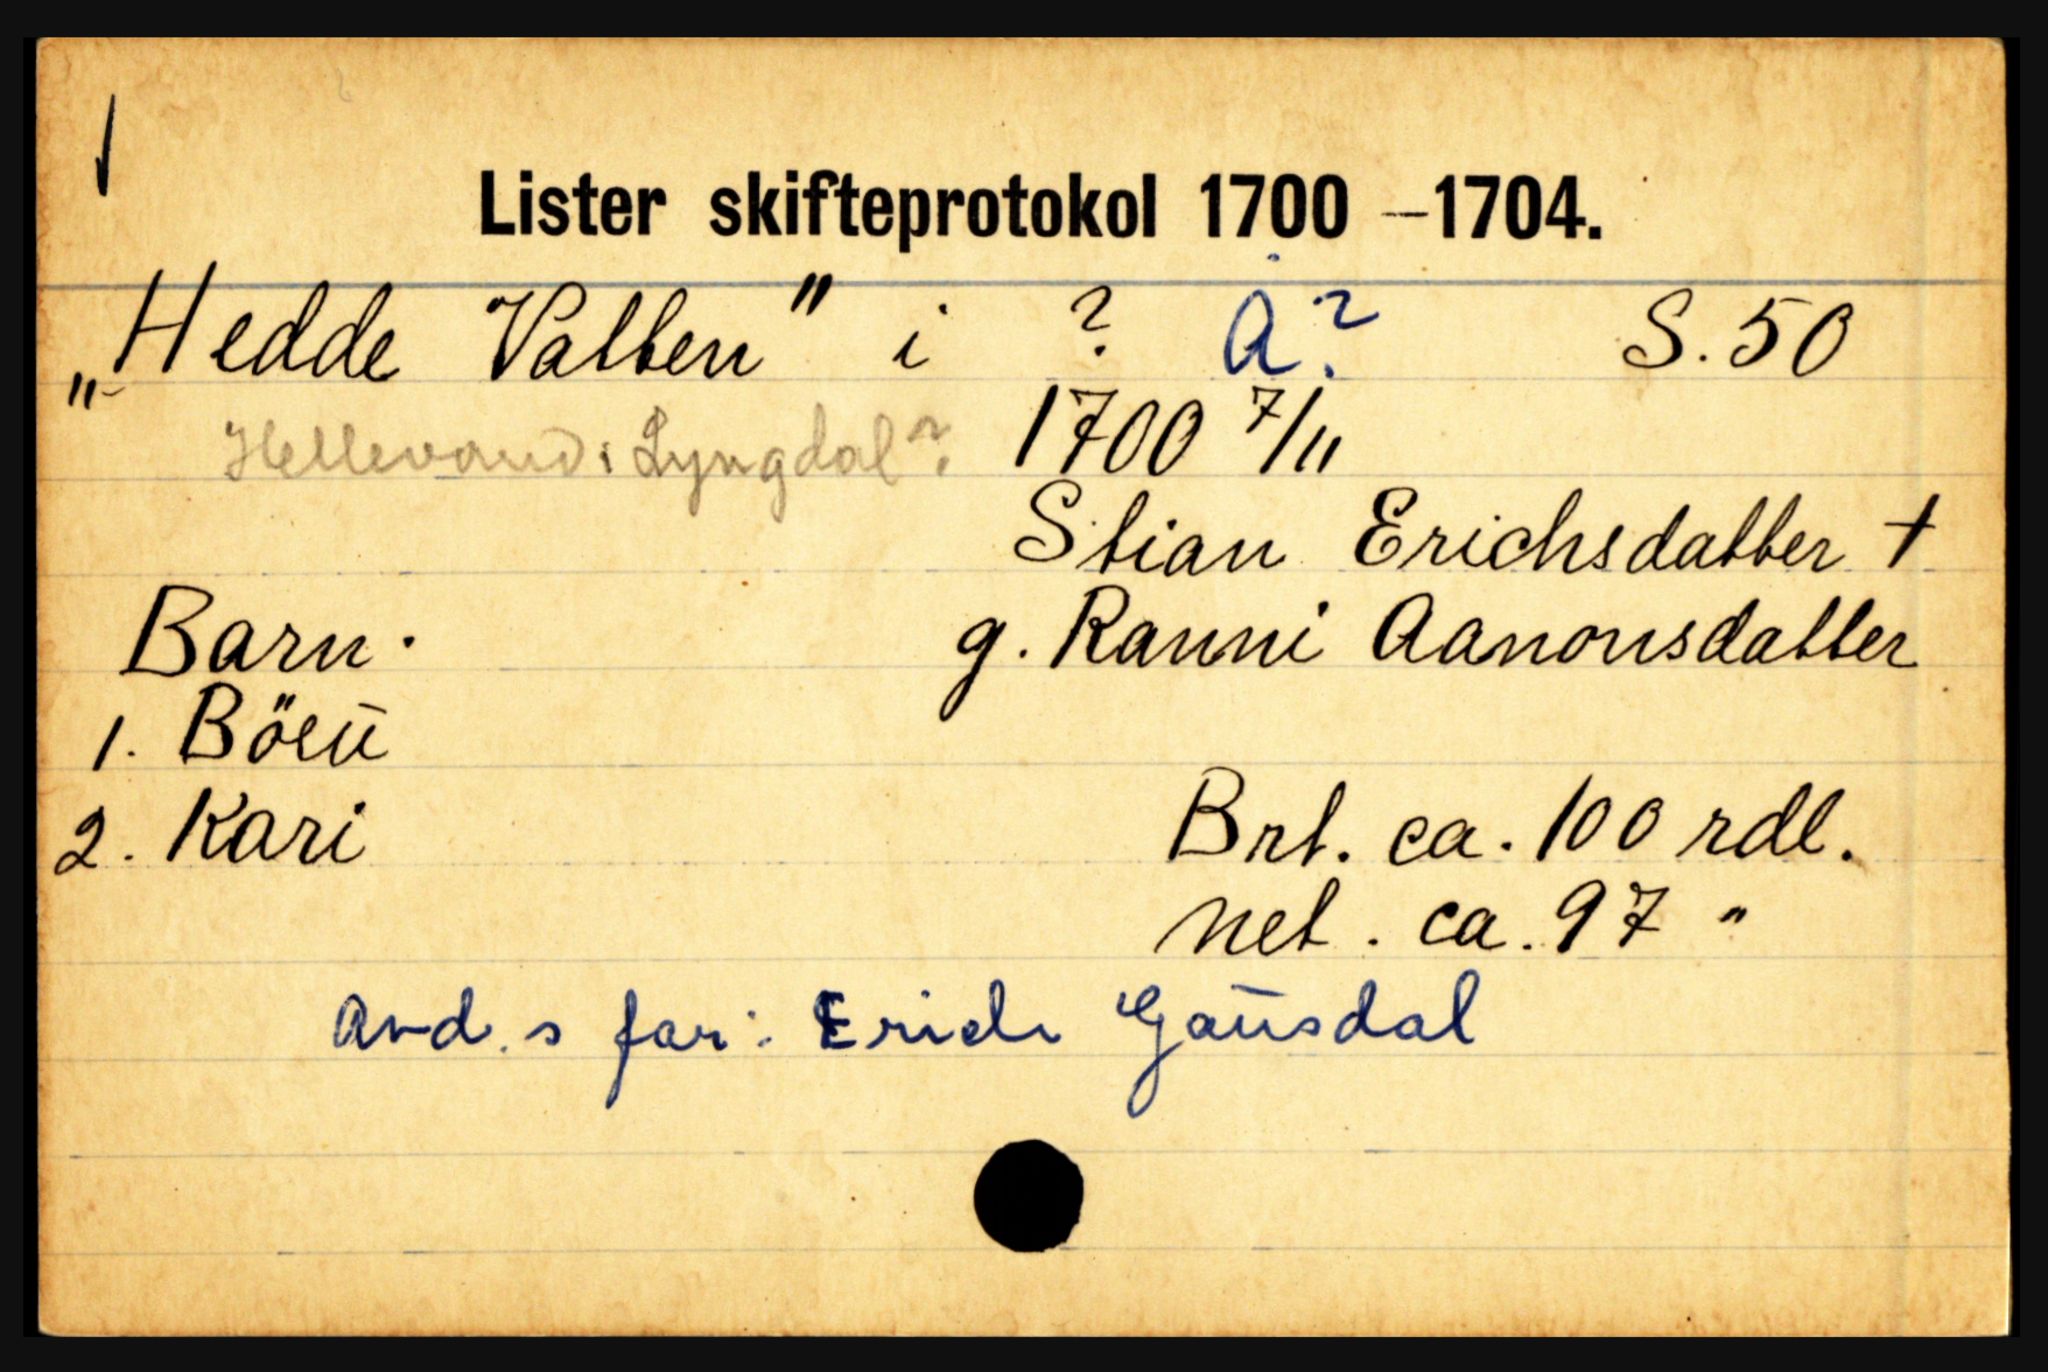 Lister skifteprotokol 1700 –1704.
„Hedde Vatten" i ? Å? S. 50
Hellevand i Lyngdal?
1700 7/11
Stian Erichsdatter +
Barn. g. Ranni Aanonsdatter
1. Böeū
2. Kari Brt. ca. 100 rdl.
net. ca. 97 "
Avd.s far: Erich Gaūsdal